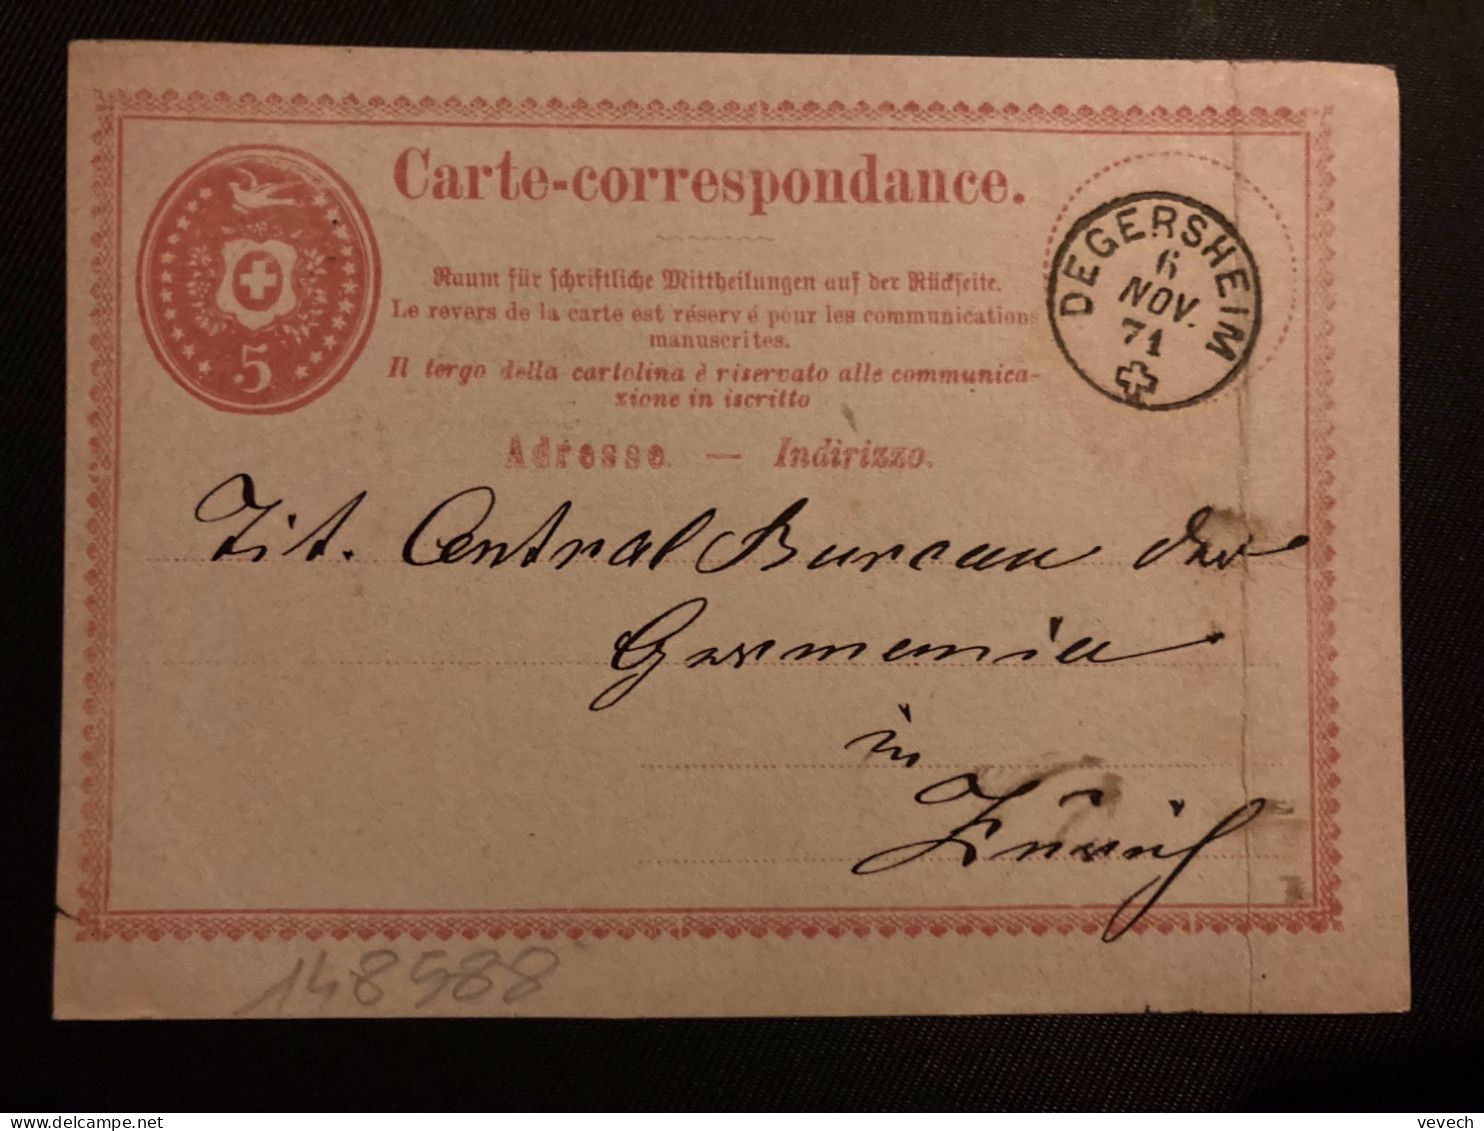 Carte-correspondance.
Raum für schriftliche Mittheilungen auf der Rückseite.
Le revers de la carte est réservé pour les communications
manuscrites.
Il tergo della cartolina è riservato alle communica-
zione in iscritto
Adresse. — Indirizzo.
5
DEGERSHEIM
6
NOV.
71
Tit. Central Bureau der
Germania
in
Zürich
148588
vevech